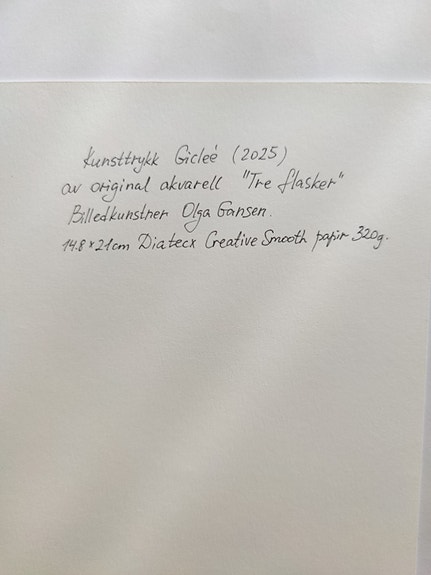 Kunsttrykk Gicleé (2025)
av original akvarell "Tre flasker"
Billedkunstner Olga Gansen.
14.8 x 21cm Diatecx Creative Smooth papir 320g.